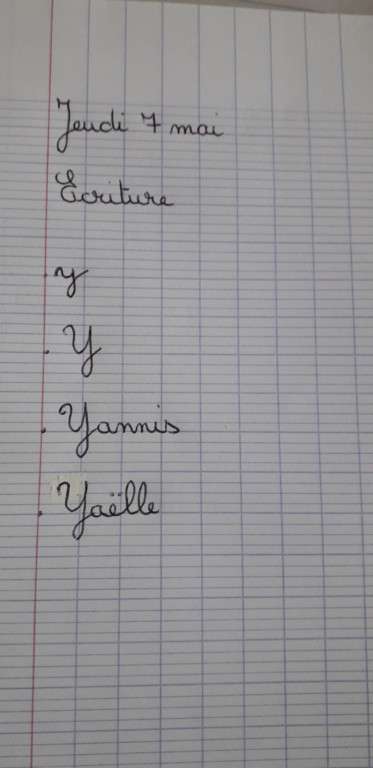 Jeudi 7 mai
Ecriture
. y
. Y
. Yannis
. Yaëlle